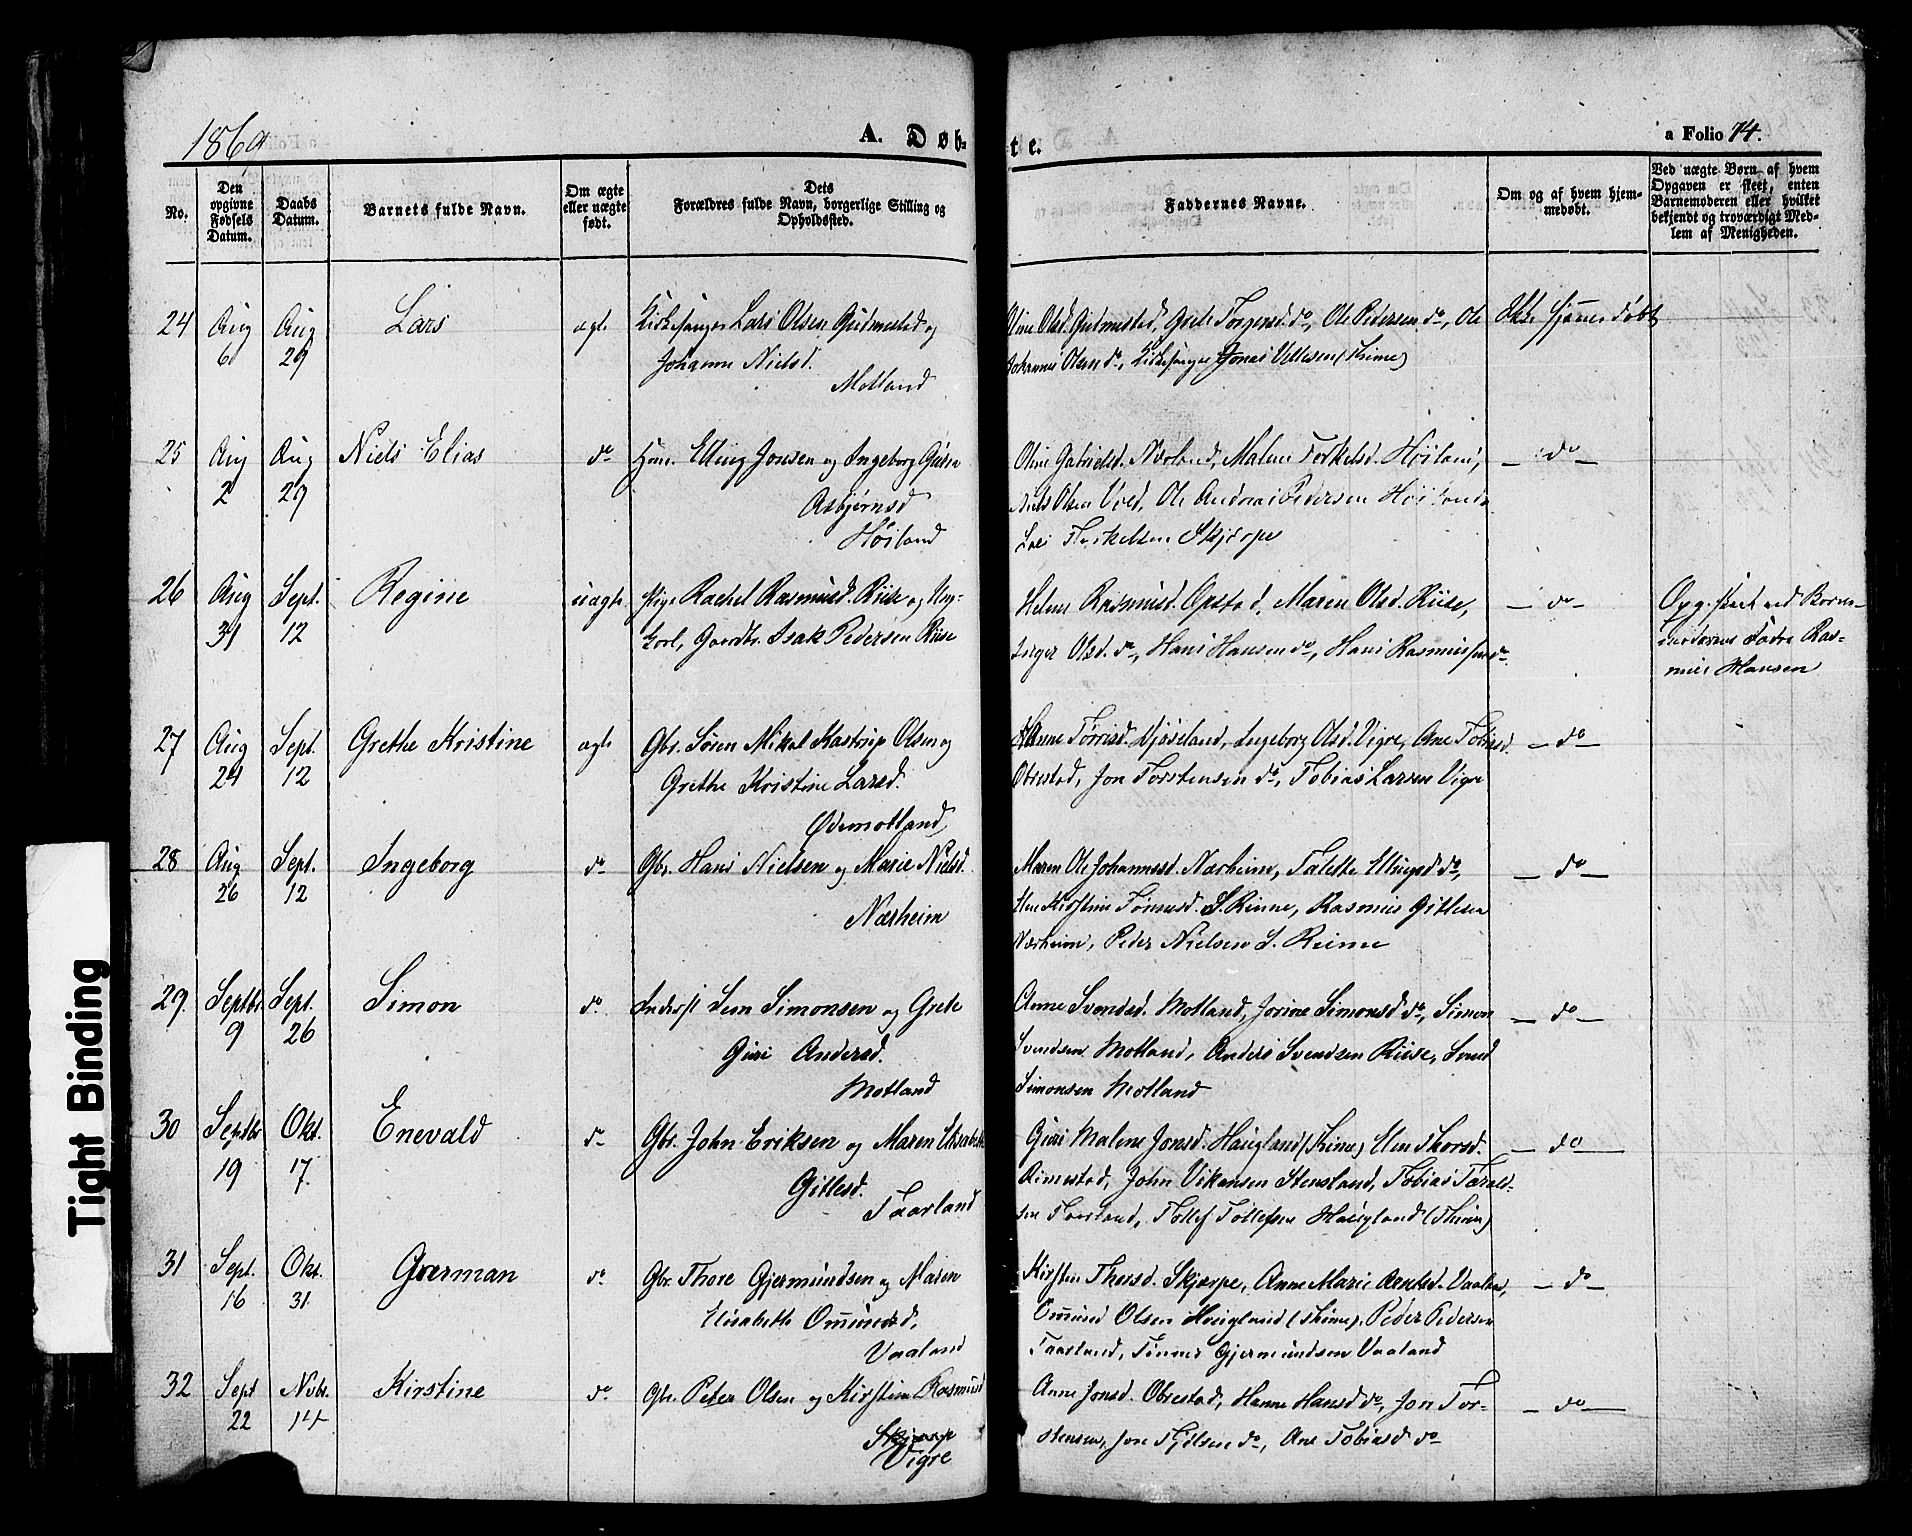 1869
A. Døb-
te.
a Folio 74.
No.
Den opgivne Fødsels Datum.
Daabs Datum.
Barnets fulde Navn.
Om ægte eller uægte født.
Dets
Forældres fulde Navn, borgerlige Stilling og
Opholdssted.
Faddernes Navne.
Om og af hvem hjem-
medøbt.
Ved uægte Børn af hvem
Opgaven er skeet, enten
Barnemoderen eller hvilket
bekjendt og troværdigt Med-
lem af Menigheden.
24 Aug 6 Aug 29 Lars ægte Kirkesanger Lars Olsen Gudmestad og
Johanne Nielsd.
Motland
Oline Olsd. Gudmestad, Grete Torgersd. do, Ole Pedersen do, Ole
Johannes Olsen do, Kirkesanger Jonas Vettesen (Thime)
Ikke hjemmedøbt
25 Aug 2 Aug 29 Niels Elias do Huus. Elling Jonsen og Ingeborg Gurine
Asbjørnsd
Høiland
Oline Gabrielsd. Nærland, Malene Torkelsd. Høiland,
Niels Olsen Vold, Ole Andreas Pedersen Høiland
Lars Torkelsen Skjærpe
— do —
26 Aug 31 Sept. 12 Regine uægte Pige Rachel Rasmusd. Riise og Ung-
karl, Gaardbr. Isak Pedersen Riise
Helene Rasmusd. Opstad, Maren Olsd. Riise,
Inger Olsd. do, Hans Hansen do, Hans Rasmussen do
— do —
Opg. skeet ved Barne-
moderens Fader Ras-
mus Hansen
27 Aug 24 Sept. 12 Grethe Kristine ægte Gbr. Søren Mikal Kastrup Olsen og
Grethe Kristine Larsd.
Ødemotland
Hanne Tørrisd. Njøseland, Ingeborg Olsd. Vigre, Ane Tobiasd.
Obrestad, Jon Torstensen do, Tobias Larsen Vigre
— do —
28 Aug 26 Sept. 12 Ingeborg do Gbr. Hans Nielsen og Marie Nielsd.
Nærheim
Maren Ole Johannesd. Nærheim, Talette Ellingsd do,
Elen Kirstine Tønnesd. S. Reime, Rasmus Gitlesen
Nærheim, Peder Nielsen S. Reime
— do —
29. Septbr. 9 Sept. 26 Simon do. Inderst Sven Simonsen og Grete
Guri Andersd.
Motland
Anne Svendsd. Motland, Jorine Simonsd do, Simon
Svendsen Motland, Anders Svendsen Riise, Svend
Simonsen Motland
— do —
30 Septbr 19 Okt. 17. Enevald do Gbr. John Eriksen og Maren Elisabeth
Gitlesd.
Taarland
Guri Malene Jonsd. Haugland (Thime) Elen Thorsd.
Rimestad, John Vikansen Stensland, Tobias Tarald-
sen Taarland, Tollef Tollefsen Haugland (Thime)
— do —
31 Sept. 16 Okt. 31. Gjerman do Gbr. Thore Gjermundsen og Maren
Elisabeth Omundsd.
Vaaland
Kirsten Thorsd. Skjærpe, Anne Marie Arntsd. Vaaland,
Omund Olsen Haugland (Thime), Peder Pedersen
Taarland, Tønnes Gjermundsen Vaaland
— do —
32 Sept 22 Novbr. 14 Kirstine do Gbr. Peter Olsen og Kirstine Rasmusd
Skjærpe
Vigre
Anne Jonsd. Obrestad, Hanne Hansd do, Jon Tor-
stensen, Jon Tjølsen do, Ane Tobiasd do
— do —
Tight Binding